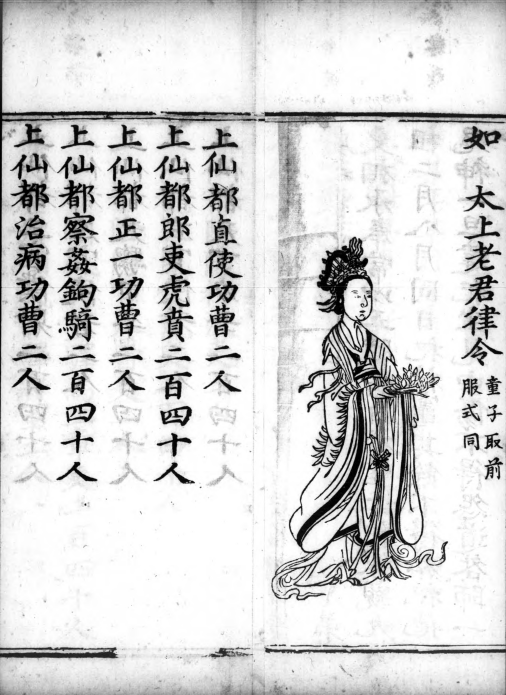 如 太上老君律令 童子取前
服式同
上仙都直使功曹二人
上仙都郎吏虎賁二百四十人
上仙都正一功曹二人
上仙都察姦鉤騎二百四十人
上仙都治病功曹二人